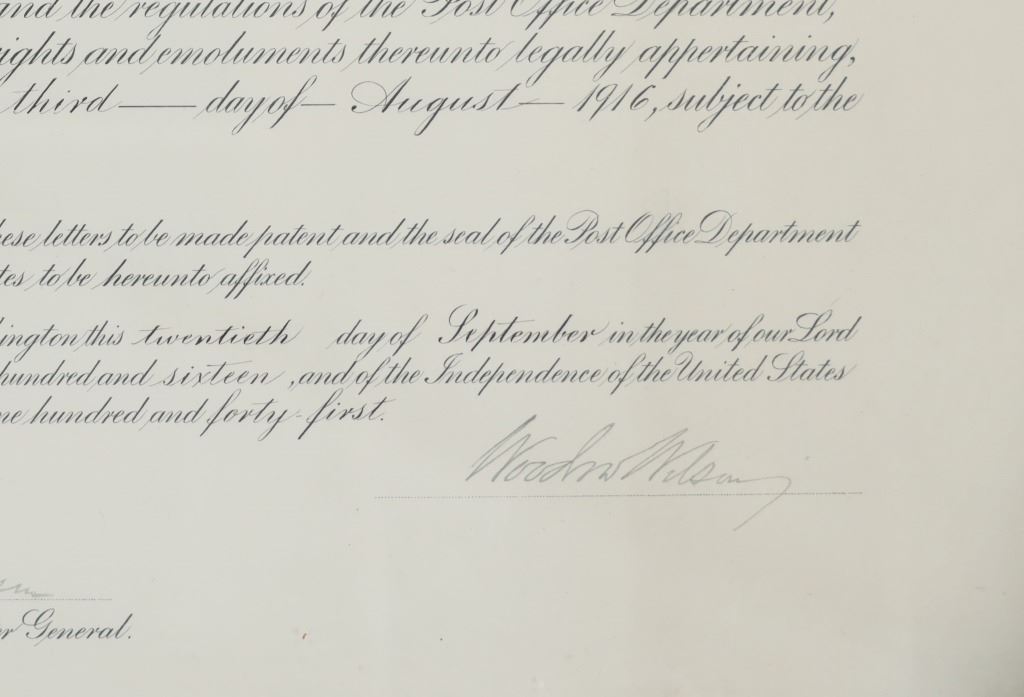 and the regulations of the Post Office Department,
ights and emoluments thereunto legally appertaining,
third — day of — August — 1916, subject to the
ese letters to be made patent and the seal of the Post Office Department
tes to be hereunto affixed.
ington this twentieth day of September in the year of our Lord
hundred and sixteen, and of the Independence of the United States
ne hundred and forty-first.
Woodrow Wilson
er General.